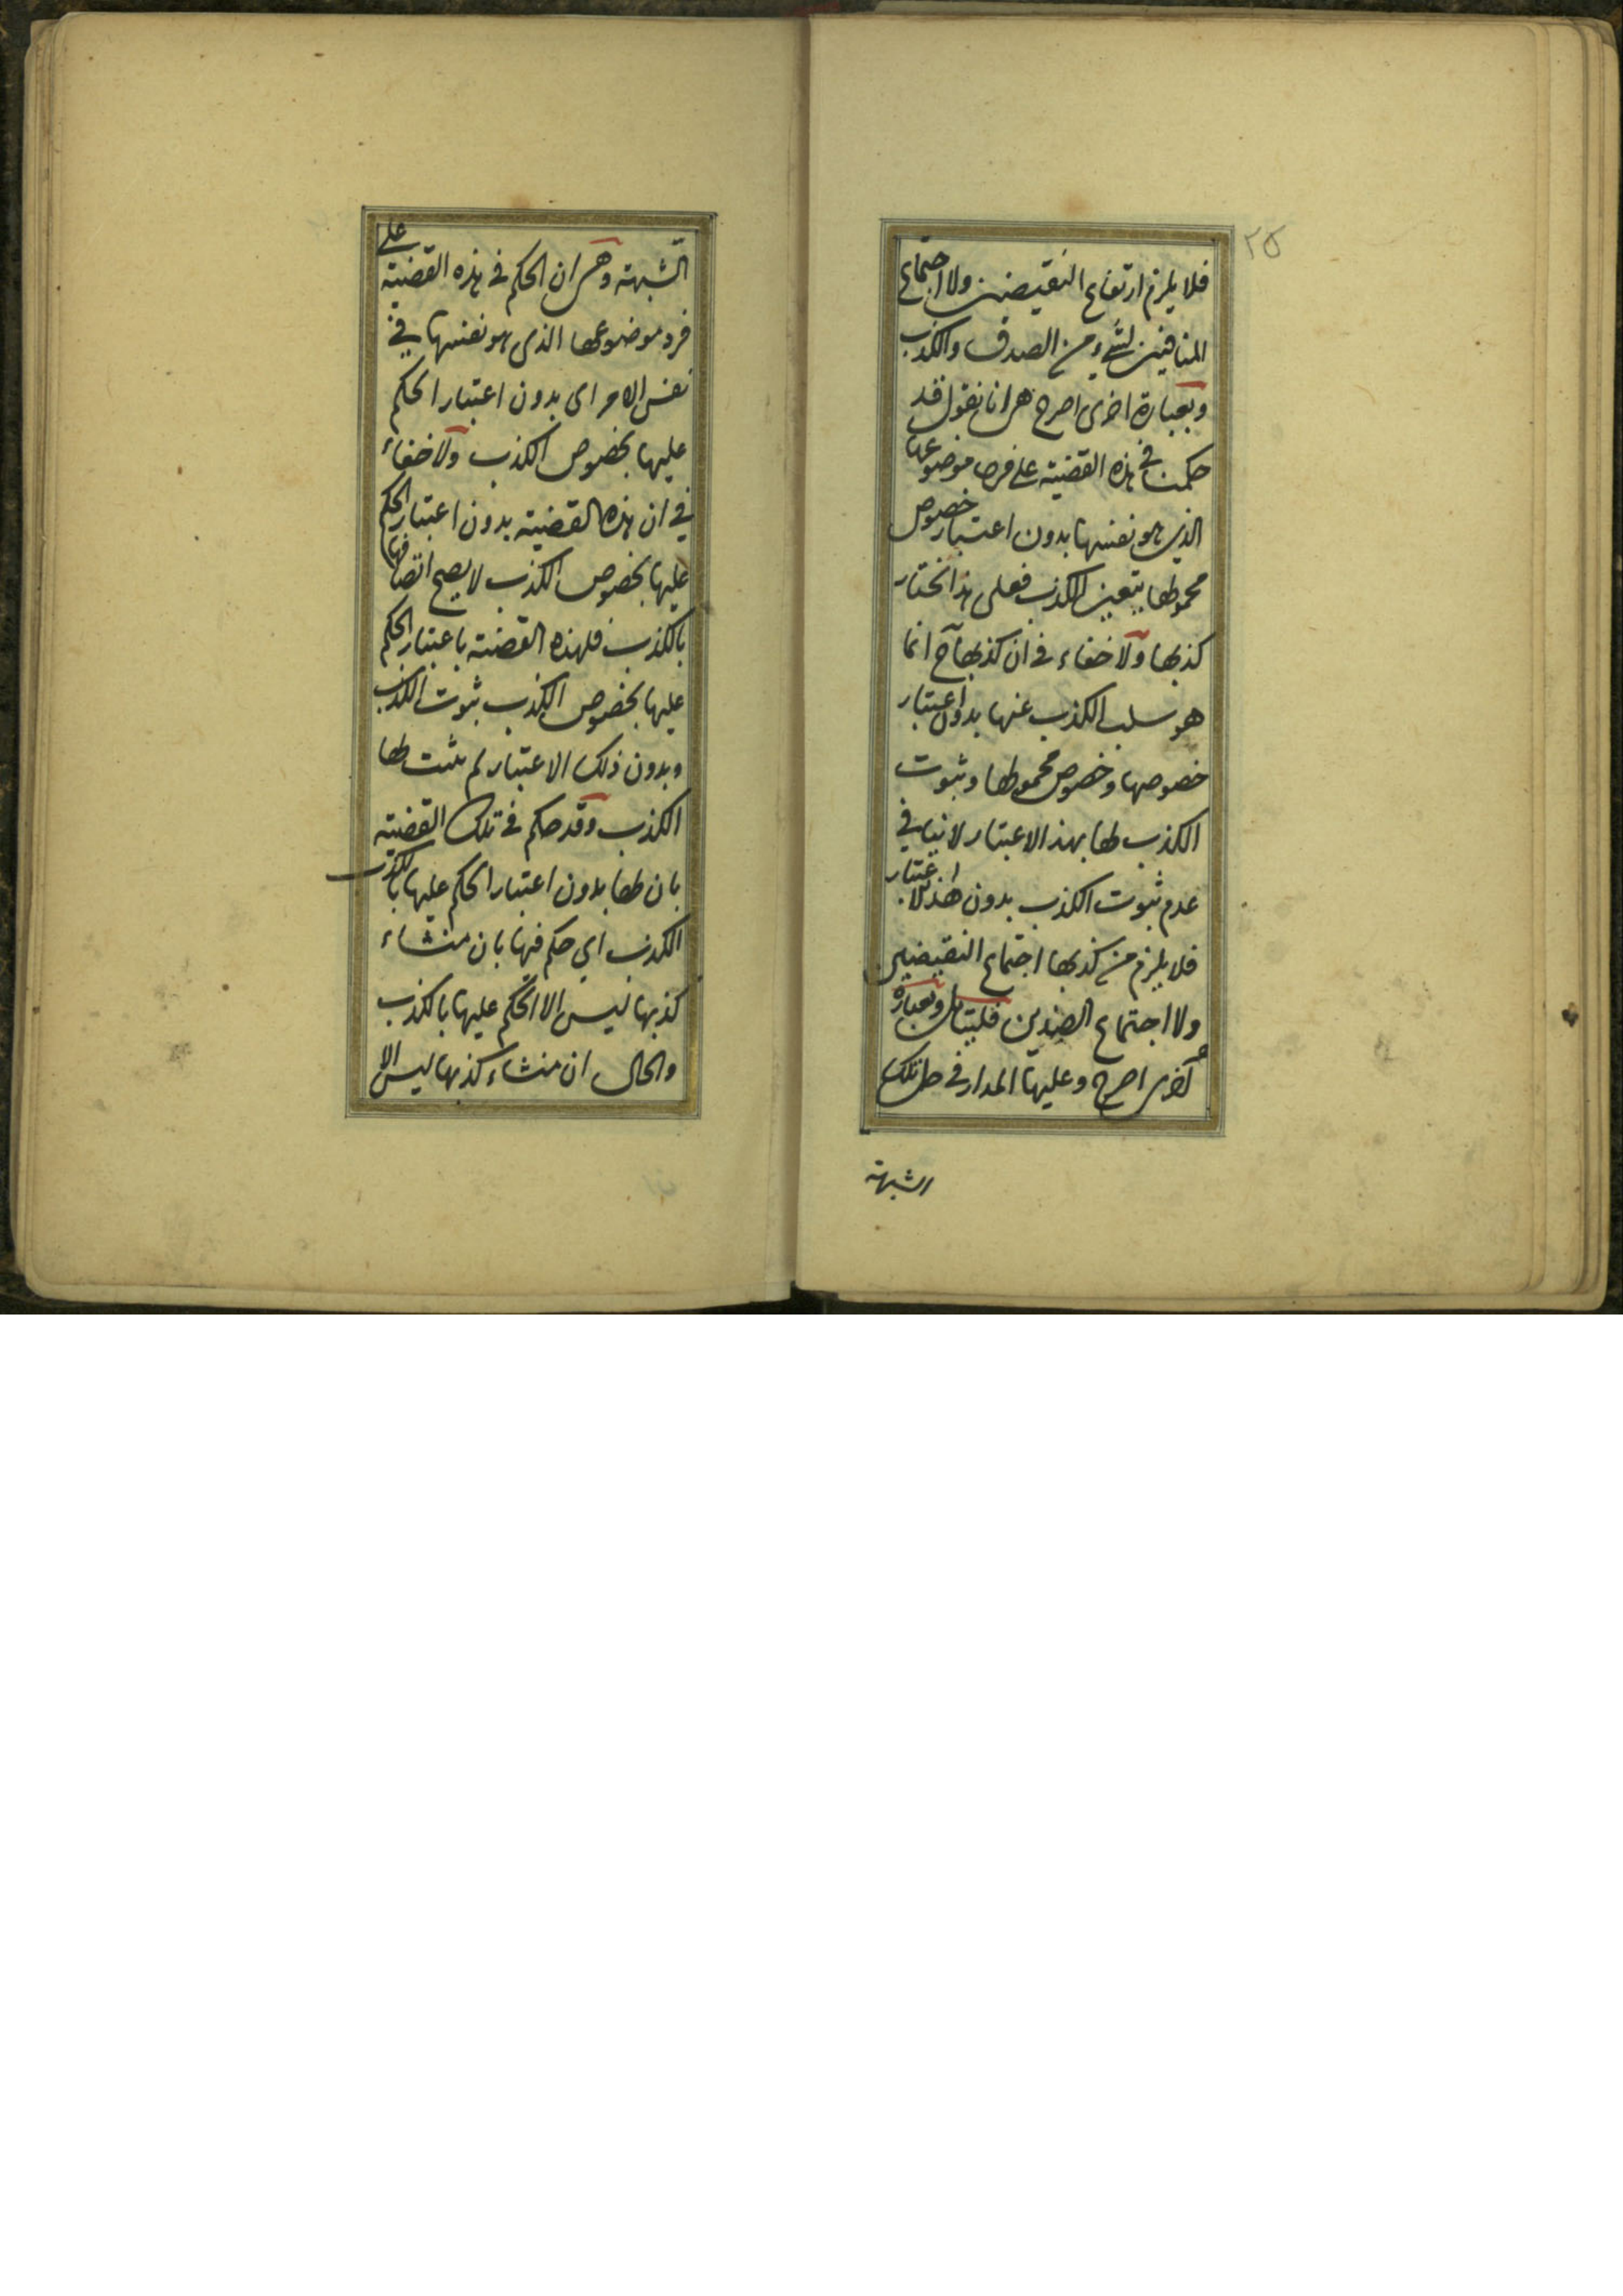 ٢٥
فلا يلزم ارتفاع النقيضين ولا اجتماع
المنافيين لشيء من الصدق والكذب
وبعبارة اخرى اصرح هى انا نقول قد
حكمنا فى هذه القضية على فرد موضوعها
الذى هو نفسها بدون اعتبار خصوص
محمولها بتعين الكذب فعلى هذا نختار
كذبها ولا خفاء فى ان كذبها ح انما
هو سلب الكذب عنها بدون اعتبار
خصوصها وخصوص محمولها وثبوت
الكذب لها بهذا الاعتبار لا ينافى
عدم ثبوت الكذب بدون هذا الاعتبار
فلا يلزم من كذبها اجتماع النقيضين
ولا اجتماع الضدين فليتامل وبعبارة
اخرى اصرح وعليها المدار فى حل تلك
الشبهة
الشبهة وهى ان الحكم فى هذه القضية على
فرد موضوعها الذى هو نفسها فى
نفس الامر اى بدون اعتبار الحكم
عليها بخصوص الكذب ولا خفاء
فى ان هذه القضية بدون اعتبار الحكم
عليها بخصوص الكذب لا يصح اتصافها
بالكذب فلهذه القضية باعتبار الحكم
عليها بخصوص الكذب ثبوت الكذب
وبدون ذلك الاعتبار لم يثبت لها
الكذب وقد حكم فى تلك القضية
بان لها بدون اعتبار الحكم عليها بالكذب
الكذب اى حكم فيها بان منشاء
كذبها ليس الا الحكم عليها بالكذب
والحال ان منشاء كذبها ليس الا